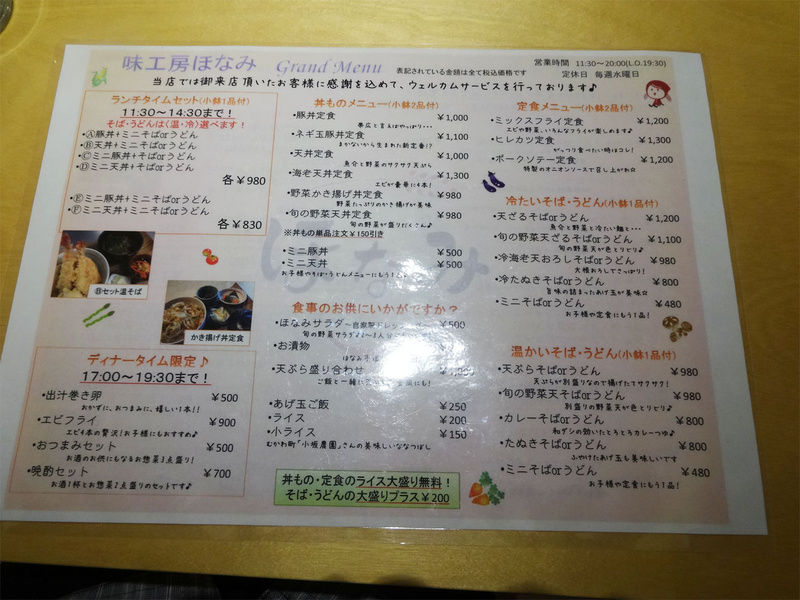 味工房ほなみ Grand Menu
表記されている金額は全て税込価格です
営業時間 11:30～20:00(L.O.19:30)
定休日 毎週水曜日
当店では御来店頂いたお客様に感謝を込めて、ウェルカムサービスを行っております♪
ランチタイムセット(小鉢1品付)
11:30～14:30まで！
そば・うどんは(温・冷)選べます！
・Ⓐ豚丼+ミニそばorうどん
・Ⓑ天丼+ミニそばorうどん
・Ⓒミニ豚丼+そばorうどん
・Ⓓミニ天丼+そばorうどん
各￥980
・Ⓔミニ豚丼+ミニそばorうどん
・Ⓕミニ天丼+ミニそばorうどん
各￥830
Ⓑセット温そば
かき揚げ丼定食
ディナータイム限定♪
17:00～19:30まで！
・出汁巻き卵 ￥500
おかずに、おつまみに、嬉しい1本！！
・エビフライ ￥900
エビ4本の贅沢！お子様にもおすすめ♪
・おつまみセット ￥500
お酒のお供にもなるお惣菜3点盛り！
・晩酌セット ￥700
お酒1杯とお惣菜2点盛りのセットです♪
丼ものメニュー(小鉢2品付)
・豚丼定食 ￥1,000
帯広と言えばやっぱり・・・
・ネギ玉豚丼定食 ￥1,100
まかないから生まれた新定番！？
・天丼定食 ￥1,000
魚介と野菜のサクサク天ぷら
・海老天丼定食 ￥1,300
エビが豪華に4本！
・野菜かき揚げ丼定食 ￥980
野菜たっぷりのかき揚げが美味
・旬の野菜天丼定食 ￥980
旬の野菜が盛りだくさん♪
※丼もの単品注文￥150引き
・ミニ豚丼 ￥500
・ミニ天丼 ￥500
お子様やそば・うどんメニューにもう1品
食事のお供にいかがですか？
・ほなみサラダ～自家製ドレッシング～ ￥500
旬の野菜サラダ2～3人分
・お漬物
ほなみ
・天ぷら盛り合わせ
ご飯と一緒に
・あげ玉ご飯 ￥250
・ライス ￥200
・小ライス ￥150
むかわ町「小坂農園」さんの美味しいななつぼし
丼もの・定食のライス大盛り無料！
そば・うどんの大盛りプラス￥200
定食メニュー(小鉢2品付)
・ミックスフライ定食 ￥1,200
エビや野菜、いろんなフライが楽しめます♪
・ヒレカツ定食 ￥1,300
がっつり食べたい時はコレ！
・ポークソテー定食 ￥1,200
特製のオニオンソースで召し上がれ☆
冷たいそば・うどん(小鉢1品付)
・天ざるそばorうどん ￥1,200
魚介と野菜と冷たい麺と・・・
・旬の野菜天ざるそばorうどん ￥1,100
旬の野菜天が色とりどり♪
・冷海老天おろしそばorうどん ￥980
大根おろしでさっぱり！
・冷たぬきそばorうどん ￥800
旨味の詰まったあげ玉が美味☆
・ミニそばorうどん ￥480
お子様や定食にもう1品！
温かいそば・うどん(小鉢1品付)
・天ぷらそばorうどん ￥980
天ぷらが別盛りなので揚げたてサクサク！
・旬の野菜天そばorうどん ￥980
別盛りの野菜天が色とりどり♪
・カレーそばorうどん ￥800
和ダシの効いたとろとろカレーつゆ♪
・たぬきそばorうどん ￥800
ふやけたあげ玉も美味しいです
・ミニそばorうどん ￥480
お子様や定食にもう1品！